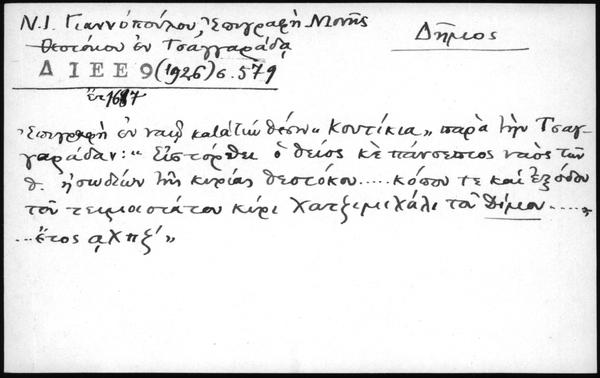 Ν.Ι. Γιαννόπουλου, Ἐπιγραφὴ Μονῆς
Δῆμος
Θεοτόκου ἐν Τσαγγαράδᾳ
ΔΙΕΕ 9 (1926) σ. 579
ἔτ. 1687
Ἐπιγραφὴ ἐν ναῷ κατὰ τὴν θέσιν « Κουτίκια » παρὰ τὴν Τσαγ-
γαράδαν: " Εἱστόρθει ὁ θεῖος κὲ πάνσεπτος ναὸς τῶν
θ. ἠσωδίων τῆς κυρίας θεοτόκου ..... κόπου τε καὶ ἐξόδου
τοῦ τειμιωτάτου κύρι Χατζιμιχάλι τοῦ Δίμου .....
... ἔτος αχπζ΄ "